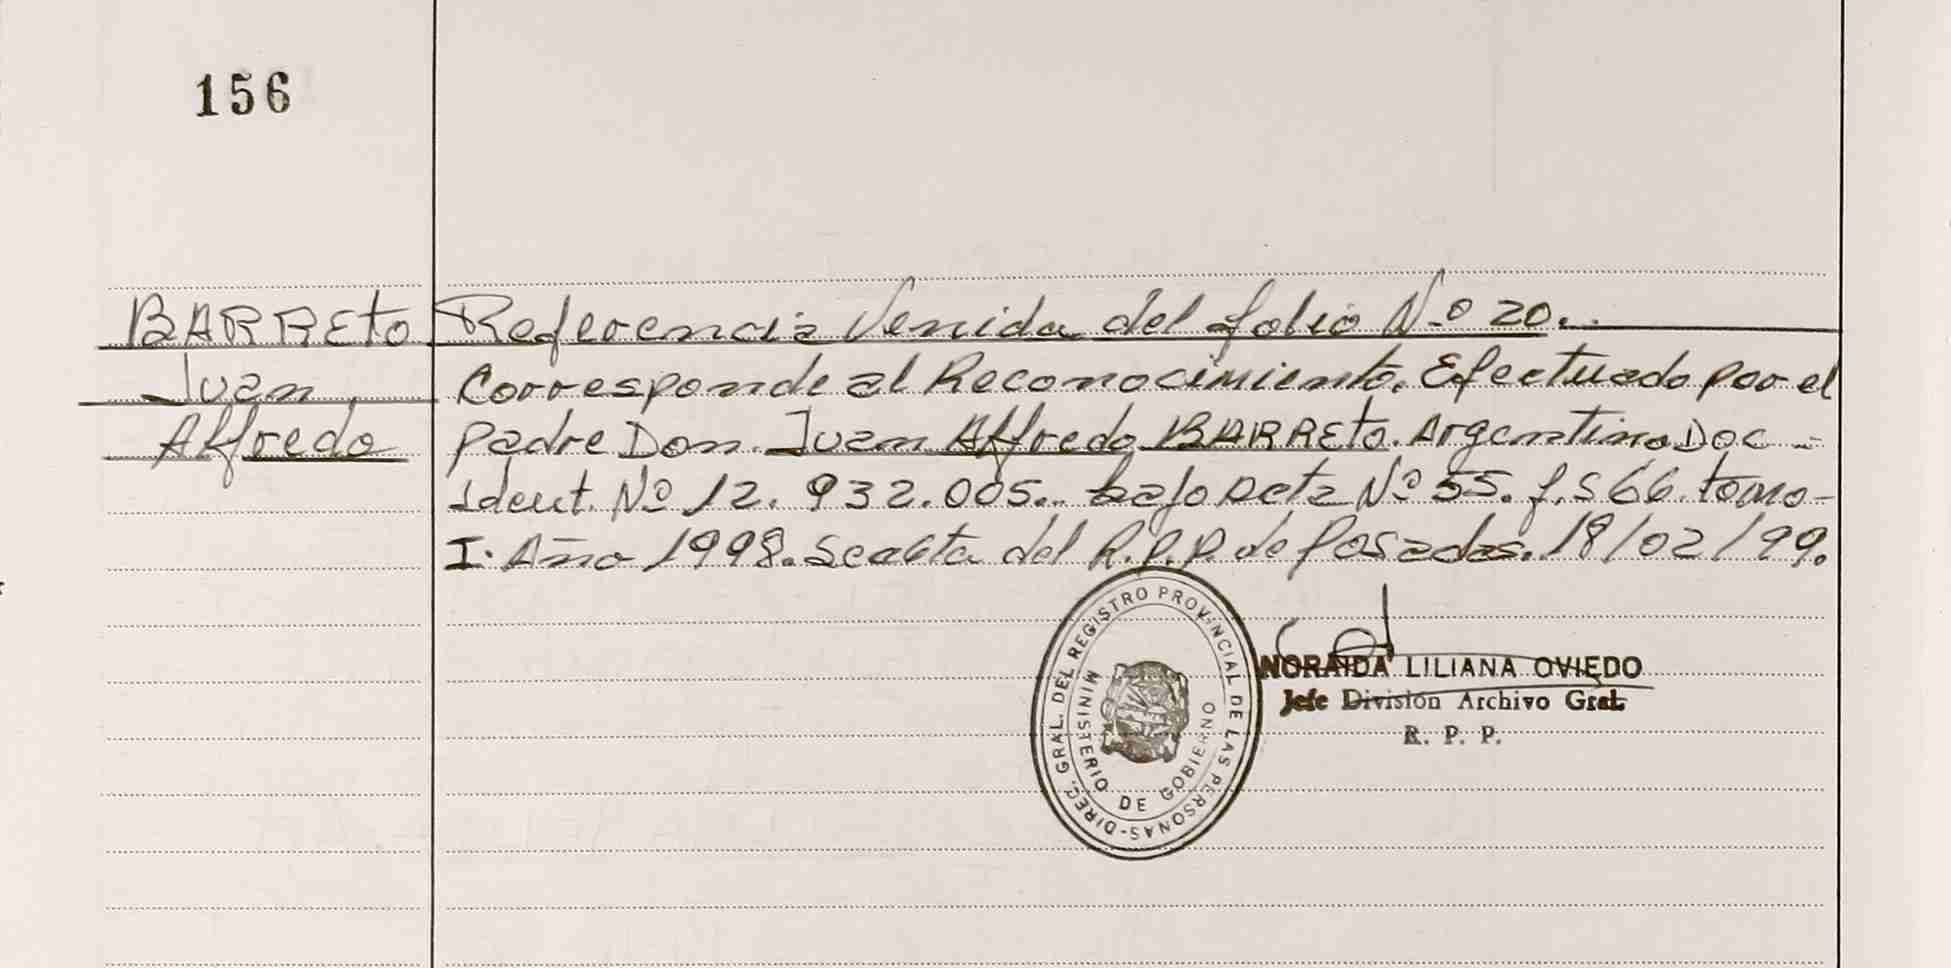 156
BARREto
Juan
Alfredo
Referencia Venida del folio Nº 20.
Corresponde al Reconocimiento. Efectuado por el
padre Don. Juan Alfredo BARREto. Argentino Doc-
Ident. Nº 12.932.005. bajo acta Nº 55. f.s 66. tomo-
I. Año 1998. Sexta del R.P.P. de Posadas. 18/02/99.
DIREC. GRAL. DEL REGISTRO PROVINCIAL DE LAS PERSONAS-
MINISTERIO DE GOBIERNO
NORAIDA LILIANA OVIEDO
Jefe División Archivo Gral.
R. P. P.